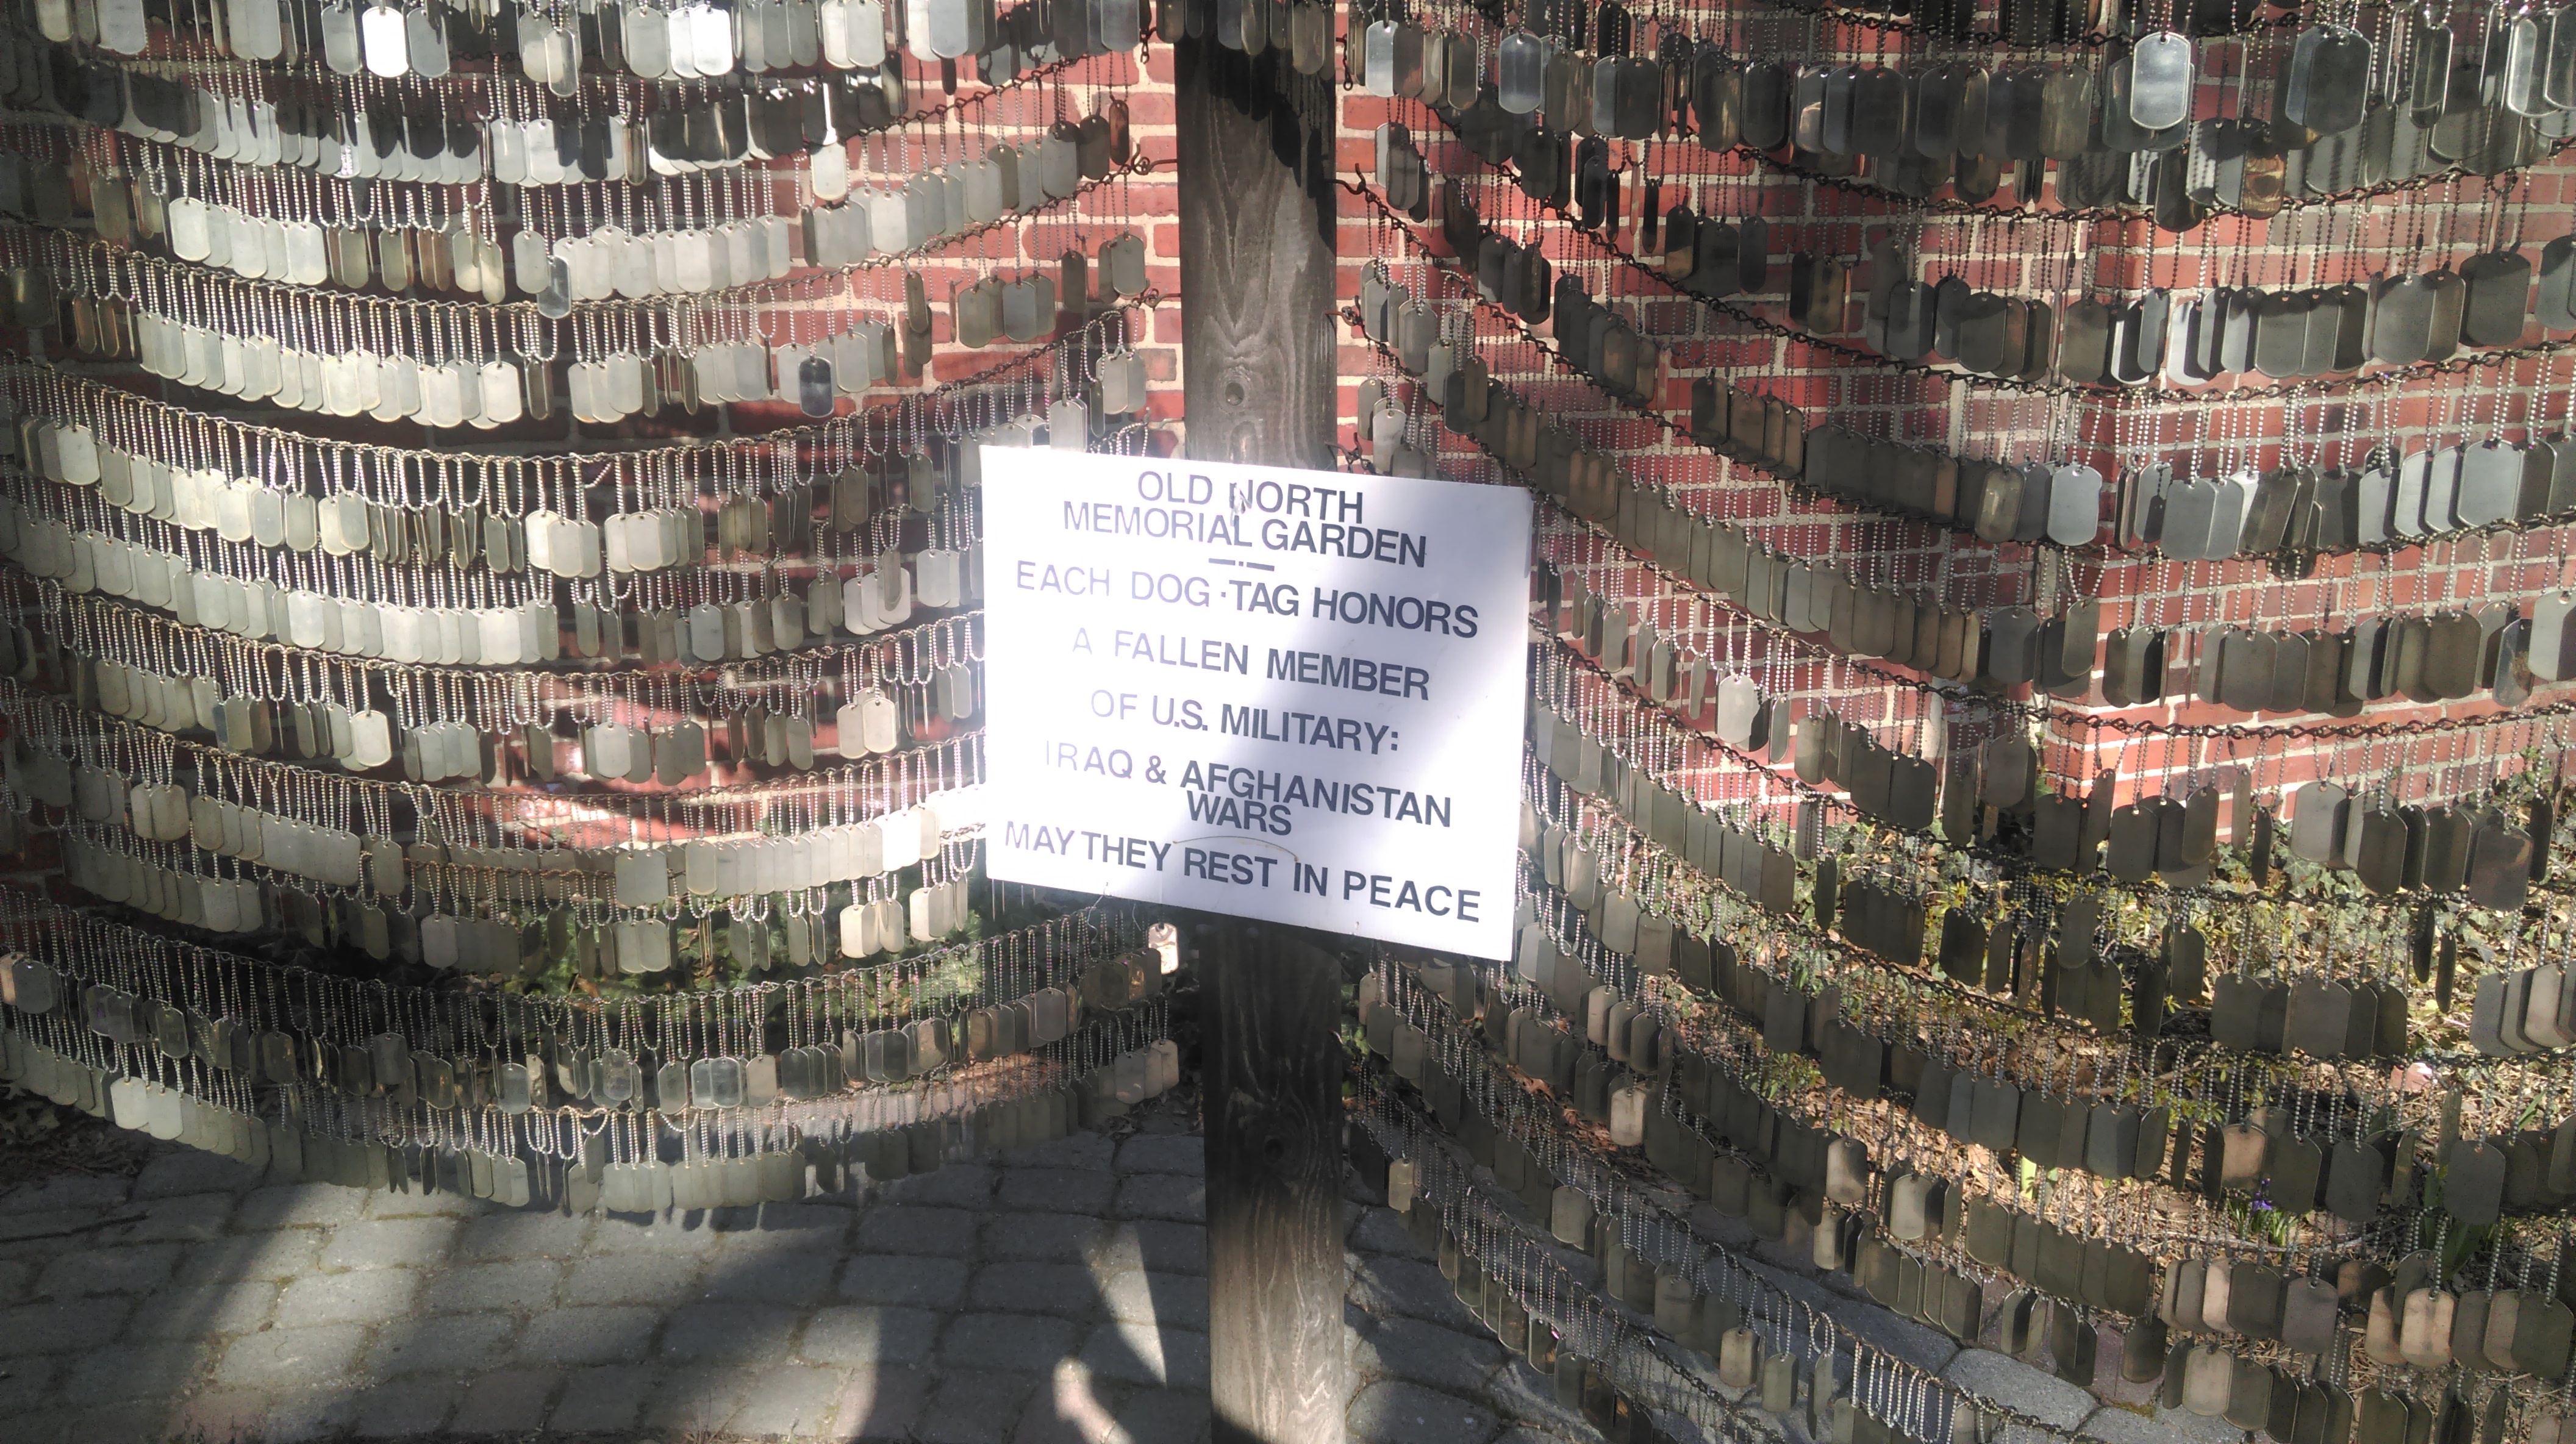 OLD NORTH
MEMORIAL GARDEN
EACH DOG·TAG HONORS
A FALLEN MEMBER
OF U.S. MILITARY:
IRAQ & AFGHANISTAN
WARS
MAY THEY REST IN PEACE